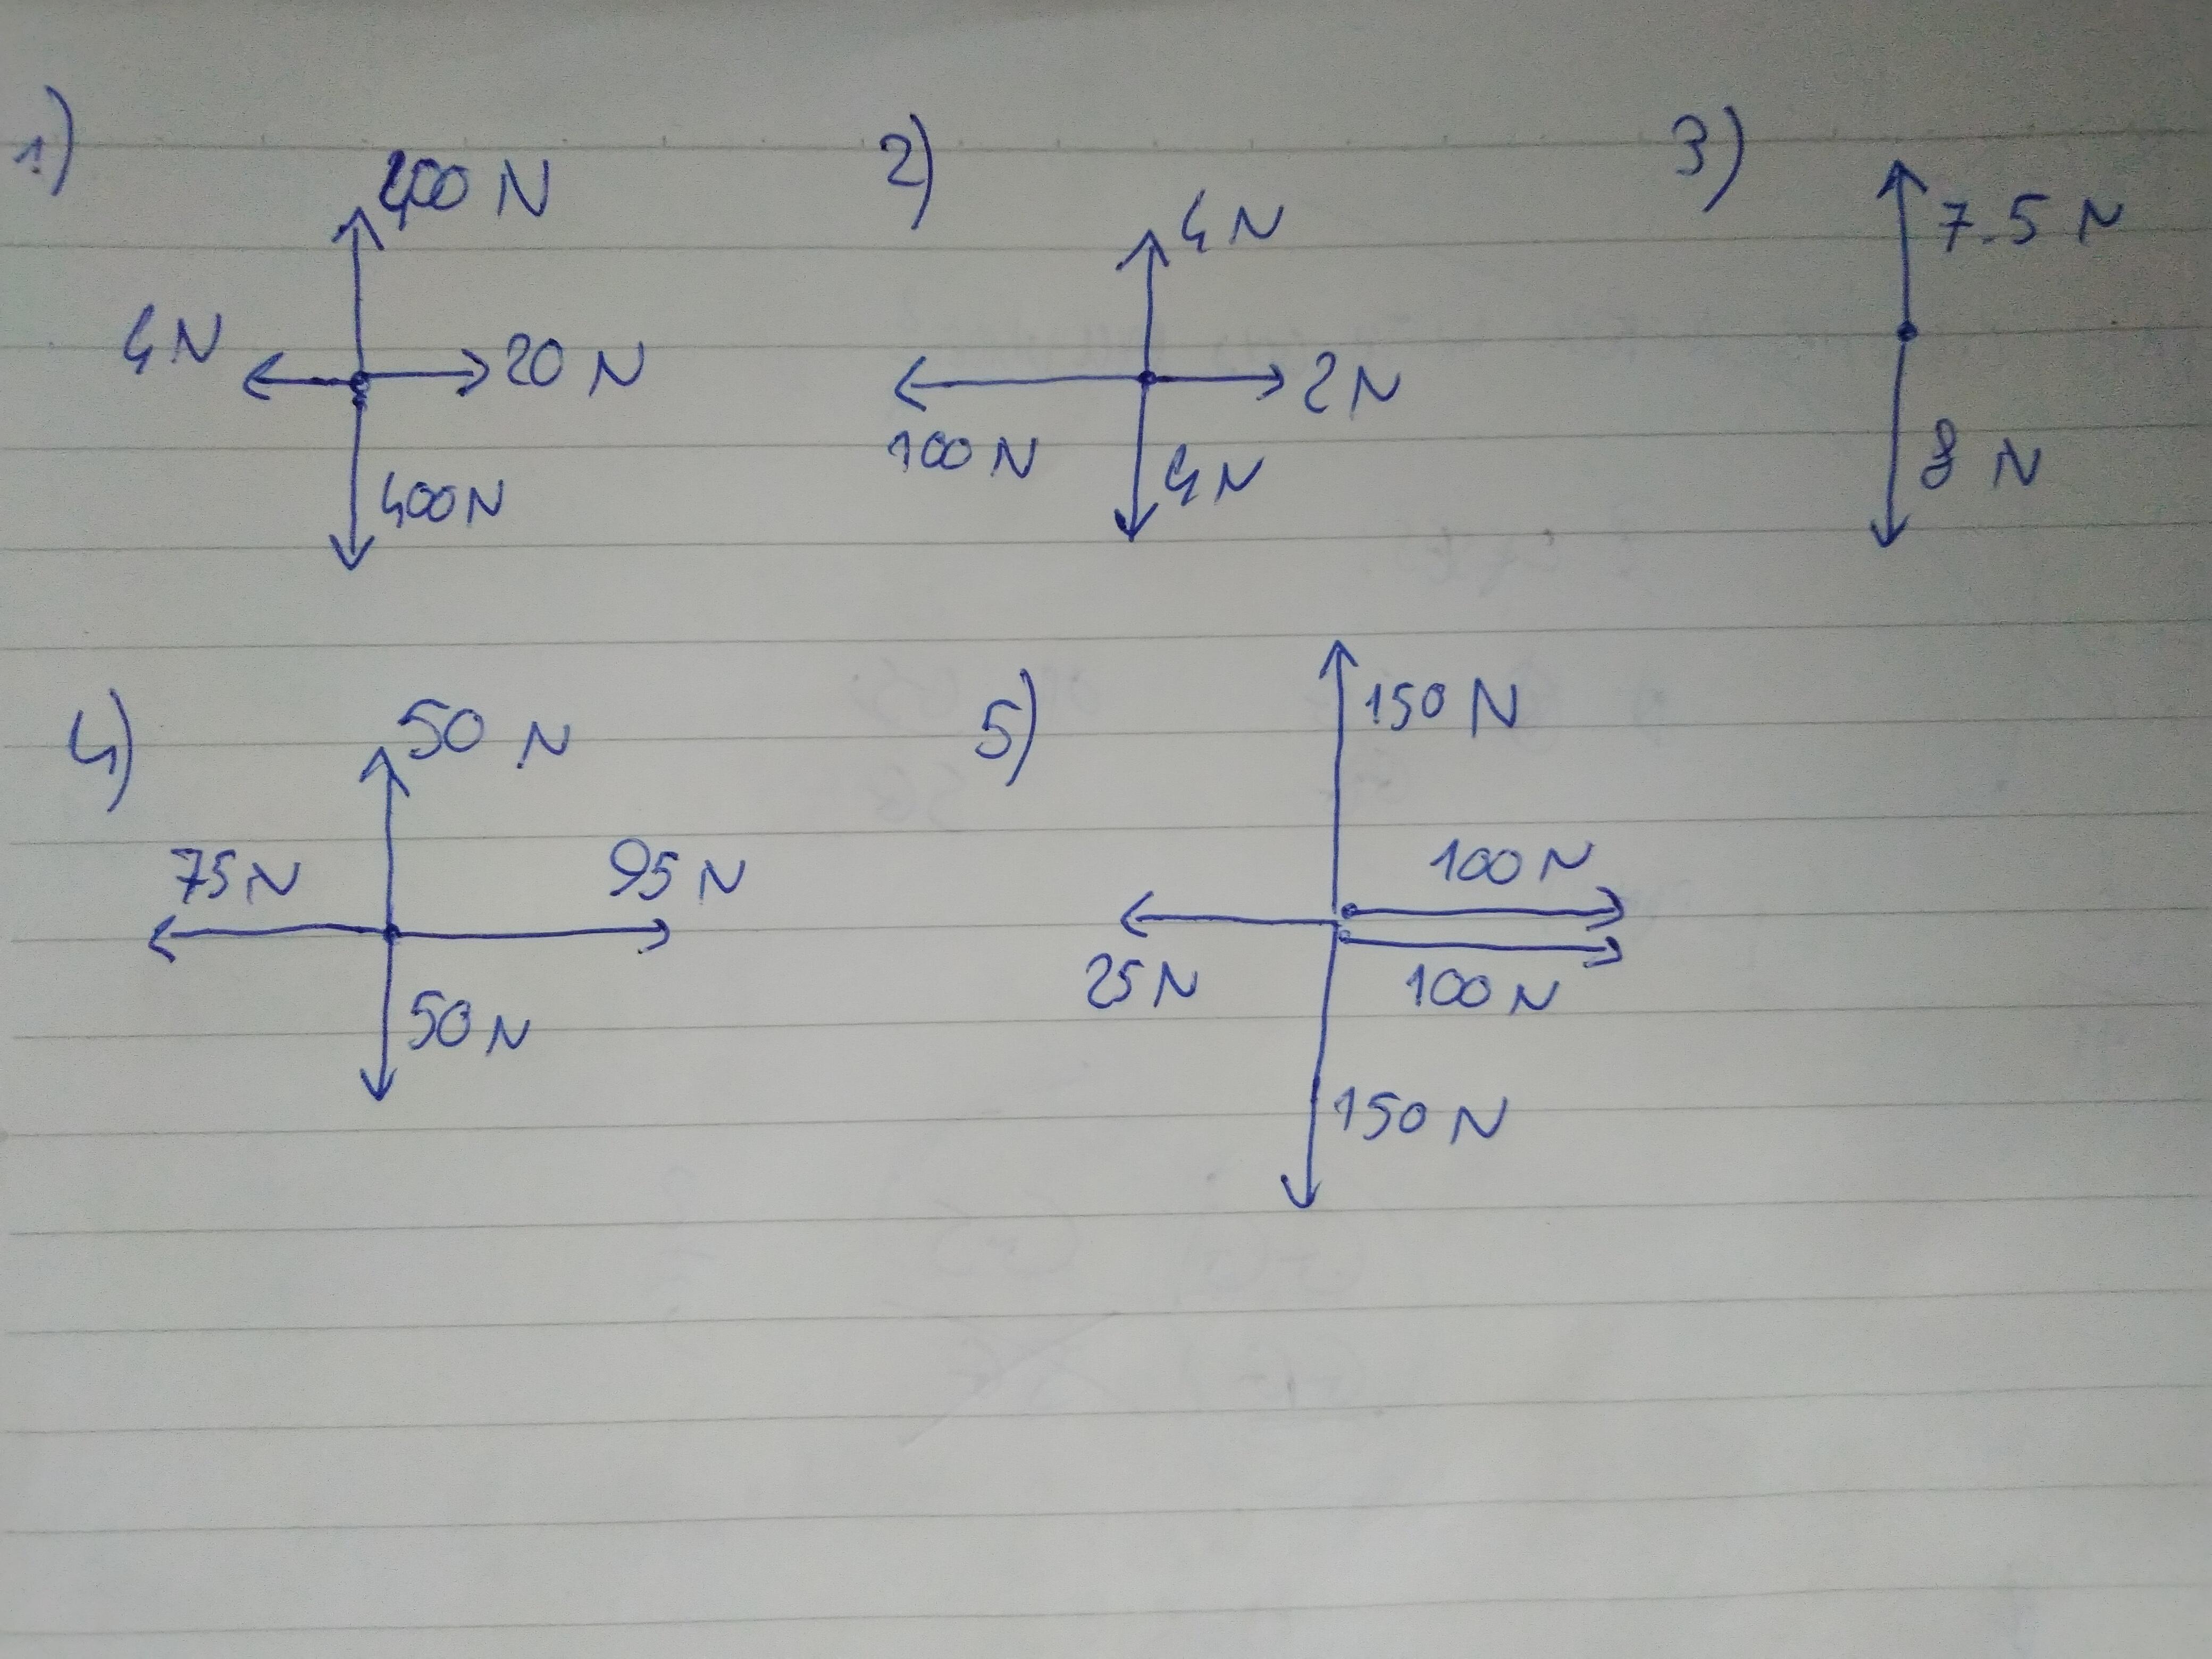 1)
400 N
4 N
20 N
400 N
2)
4 N
100 N
2 N
4 N
3)
7.5 N
8 N
4)
50 N
75 N
95 N
50 N
5)
150 N
100 N
25 N
100 N
150 N